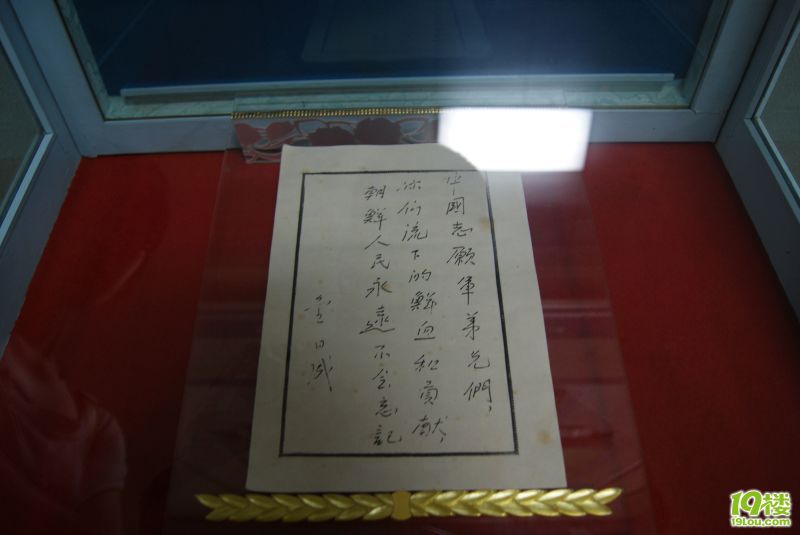 中國志願軍弟兄們,
你们流下的鮮血和貢献,
朝鮮人民永遠不会忘記
金日成
19楼
19lou.com